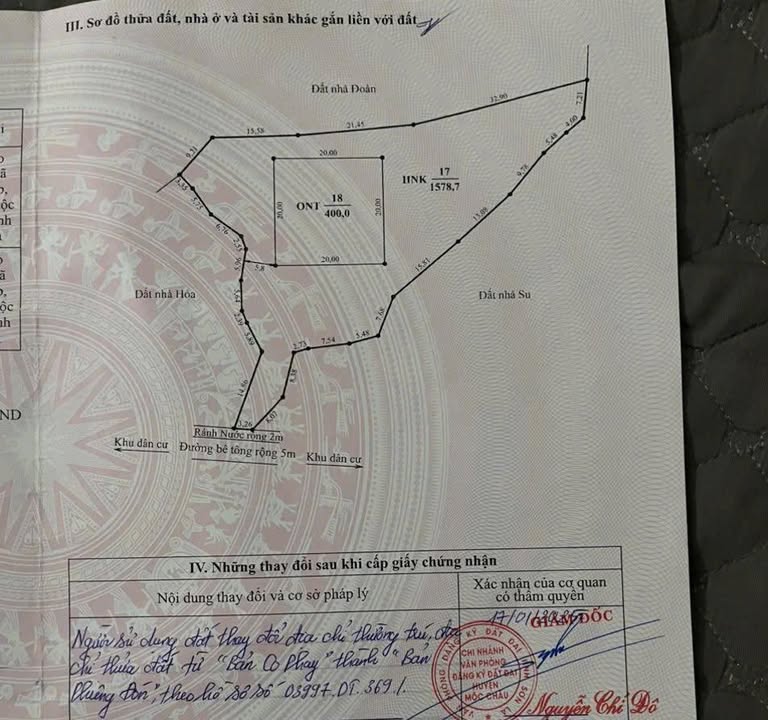 III. Sơ đồ thửa đất, nhà ở và tài sản khác gắn liền với đất
Đất nhà Đoàn
32,90
7,21
15,58
21,45
4,00
5,48
9,21
20,00
HNK 17 1578,7
9,78
3,35
5,75
ONT 18 400,0
20,00
20,00
6,76
2,55
13,09
5,96
5,8
20,00
15,51
Đất nhà Hóa
Đất nhà Su
3,64
2,39
7,68
5,89
2,73
7,54
5,48
8,38
14,86
3,26
8,07
Rãnh Nước rộng 2m
Khu dân cư
Đường bê tông rộng 5m
Khu dân cư
ND
IV. Những thay đổi sau khi cấp giấy chứng nhận
Nội dung thay đổi và cơ sở pháp lý
Xác nhận của cơ quan có thẩm quyền
Người sử dụng đất thay đổi địa chỉ thường trú, địa
chỉ thửa đất từ "Bản Co Phay" thành "Bản
Phiêng Đón", theo hồ sơ số 03997.DT.369./.
GIÁM ĐỐC
CHI NHÁNH
VĂN PHÒNG
ĐĂNG KÝ ĐẤT ĐAI
HUYỆN
MỘC CHÂU
Nguyễn Chí Đô